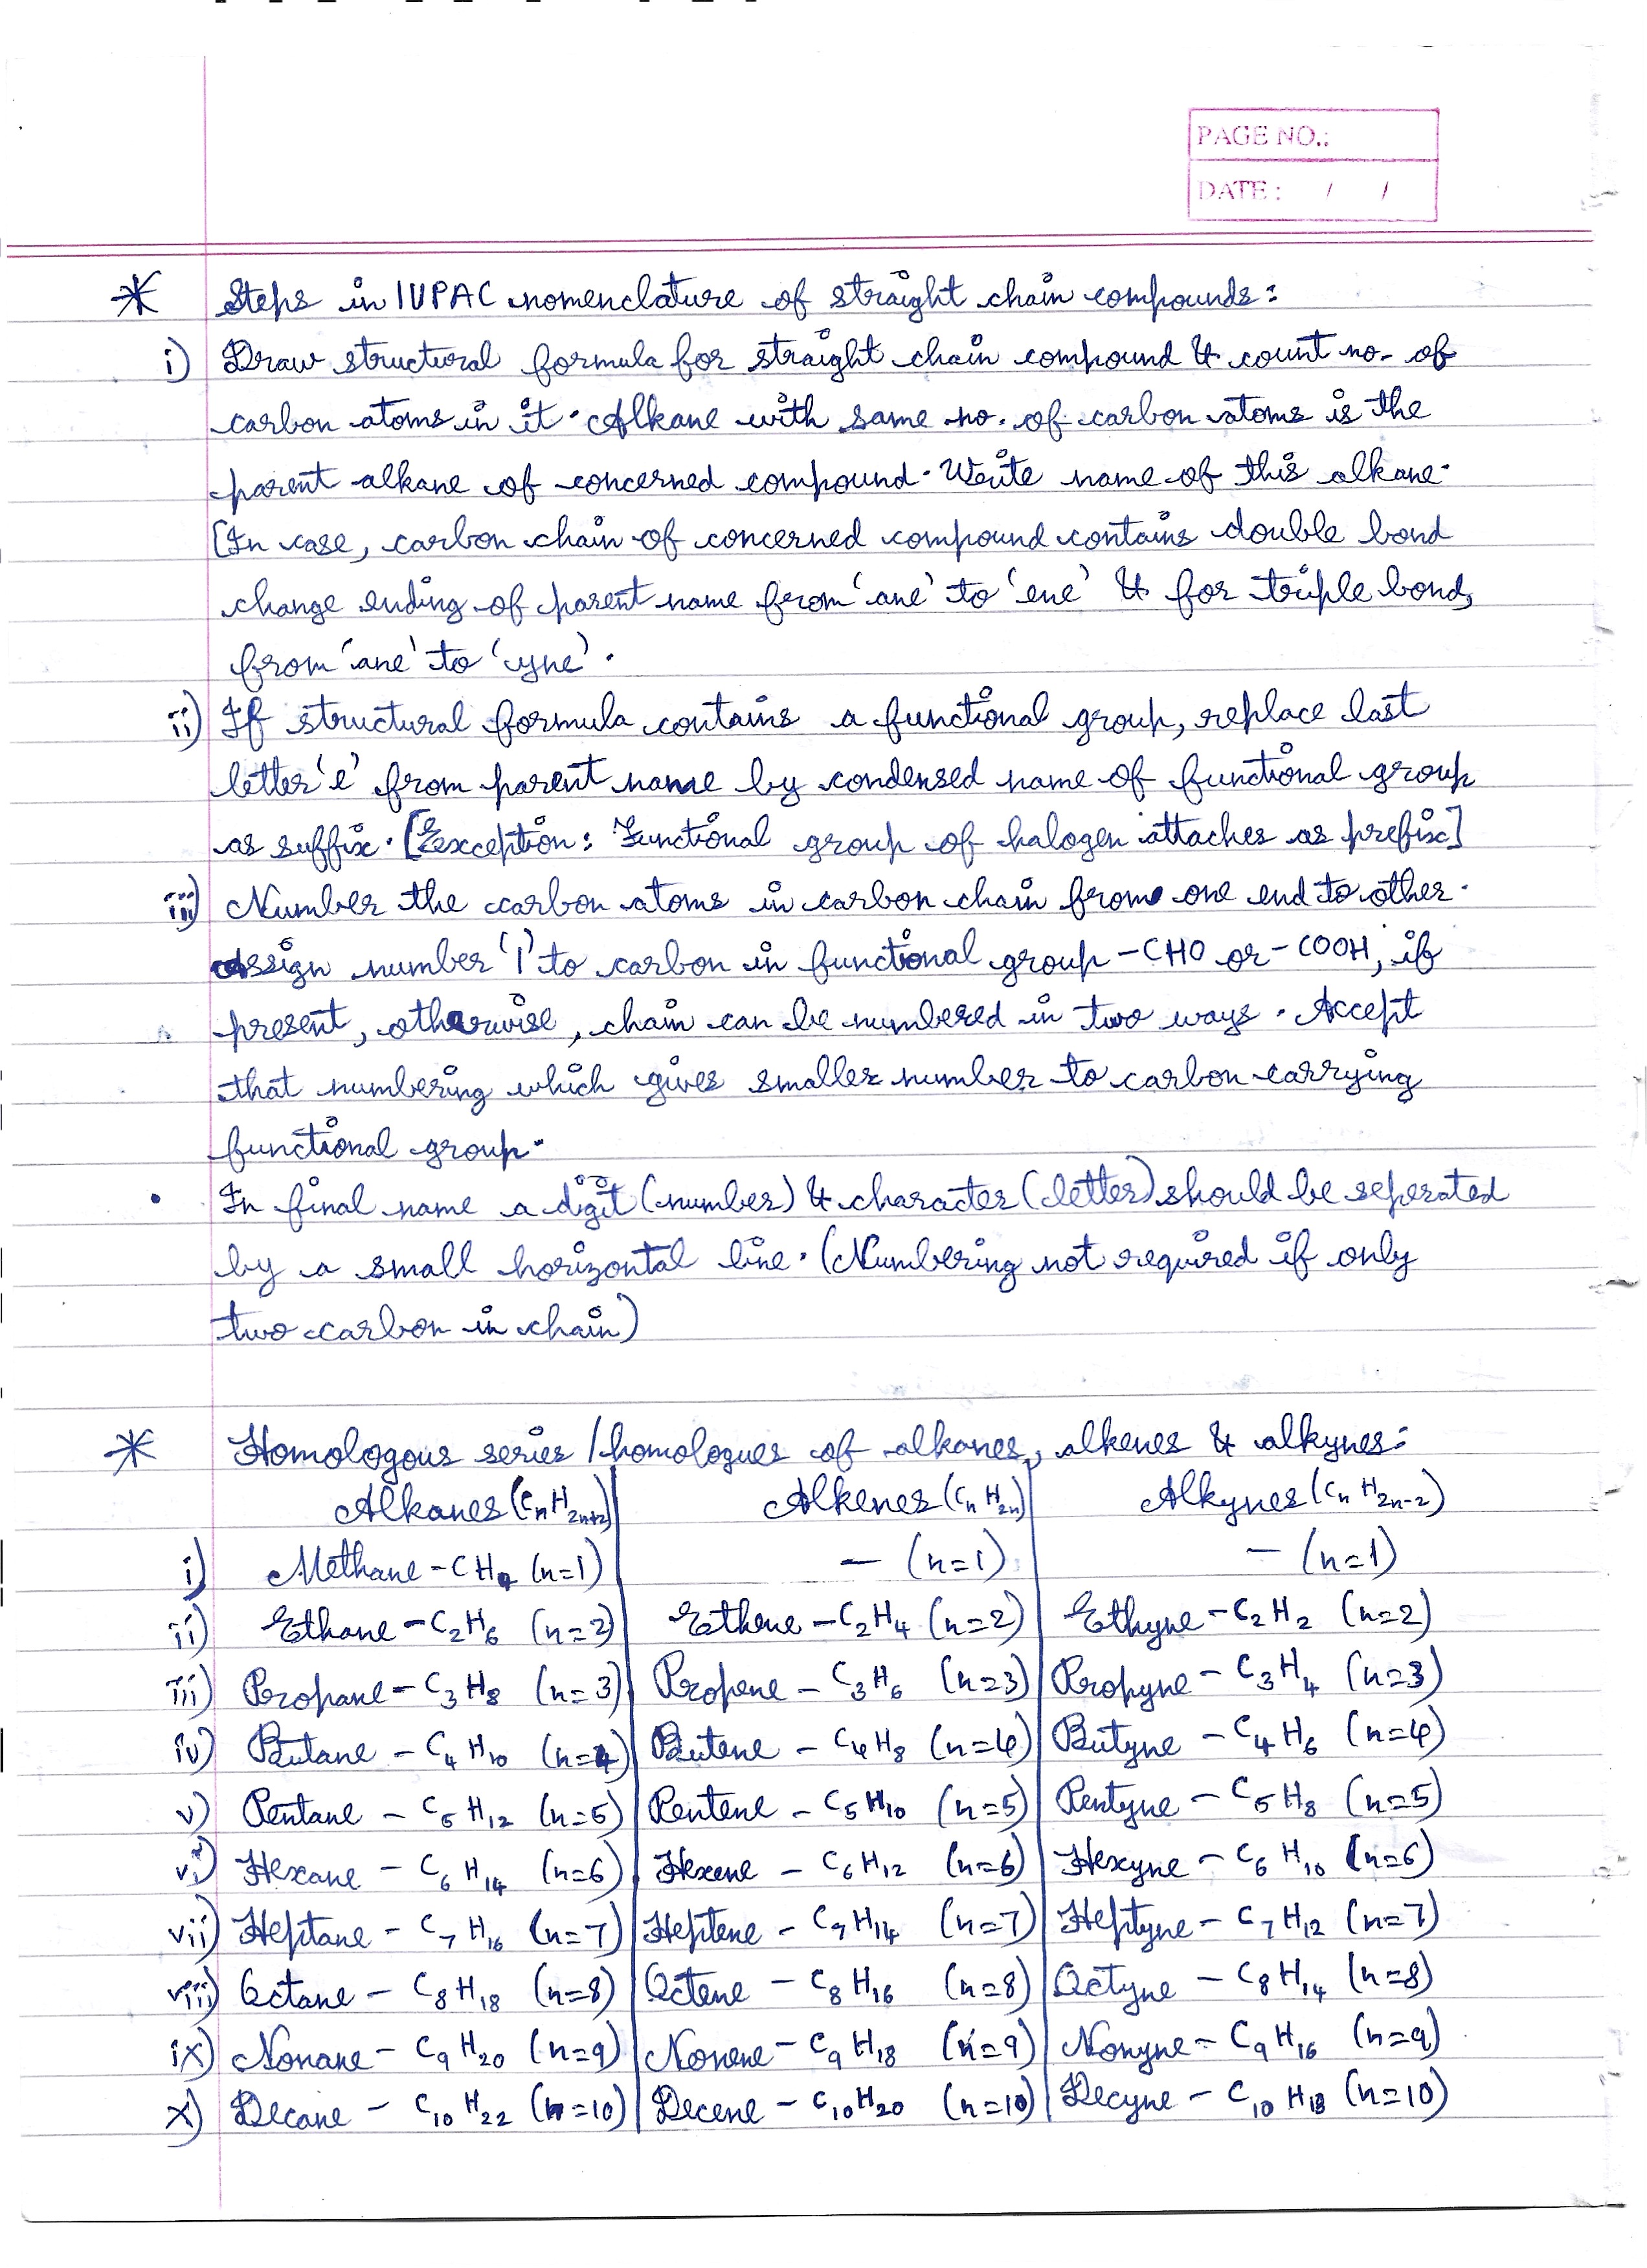 PAGE NO.:
DATE: / /
* Steps in IUPAC nomenclature of straight chain compounds:
i) Draw structural formula for straight chain compound & count no. of
carbon atoms in it. Alkane with same no. of carbon atoms is the
parent alkane of concerned compound. Write name of this alkane.
[In case, carbon chain of concerned compound contains double bond
change ending of parent name from 'ane' to 'ene' & for triple bond,
from 'ane' to 'yne'.
ii) If structural formula contains a functional group, replace last
letter 'e' from parent name by condensed name of functional group
as suffix. [Exception: Functional group of halogen attaches as prefix]
iii) Number the carbon atoms in carbon chain from one end to other.
Assign number '1' to carbon in functional group -CHO or -COOH, if
present, otherwise, chain can be numbered in two ways. Accept
that numbering which gives smaller number to carbon carrying
functional group.
• In final name a digit (number) & character (letter) should be seperated
by a small horizontal line. (Numbering not required if only
two carbon in chain)
* Homologous series / homologues of alkanes, alkenes & alkynes:
Alkanes (CnH2n+2) Alkenes (CnH2n) Alkynes (CnH2n-2)
i) Methane - CH4 (n=1) — (n=1) — (n=1)
ii) Ethane - C2H6 (n=2) Ethene - C2H4 (n=2) Ethyne - C2H2 (n=2)
iii) Propane - C3H8 (n=3) Propene - C3H6 (n=3) Propyne - C3H4 (n=3)
iv) Butane - C4H10 (n=4) Butene - C4H8 (n=4) Butyne - C4H6 (n=4)
v) Pentane - C5H12 (n=5) Pentene - C5H10 (n=5) Pentyne - C5H8 (n=5)
vi) Hexane - C6H14 (n=6) Hexene - C6H12 (n=6) Hexyne - C6H10 (n=6)
vii) Heptane - C7H16 (n=7) Heptene - C7H14 (n=7) Heptyne - C7H12 (n=7)
viii) Octane - C8H18 (n=8) Octene - C8H16 (n=8) Octyne - C8H14 (n=8)
ix) Nonane - C9H20 (n=9) Nonene - C9H18 (n=9) Nonyne - C9H16 (n=9)
x) Decane - C10H22 (n=10) Decene - C10H20 (n=10) Decyne - C10H18 (n=10)